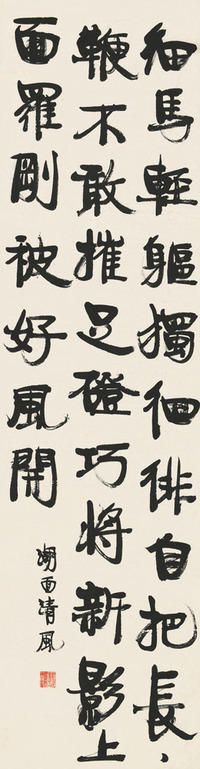 細馬輕軀獨徊徘自把長、
鞭不敢摧足磴巧將新影上
面羅剛被好風開
湖面清風